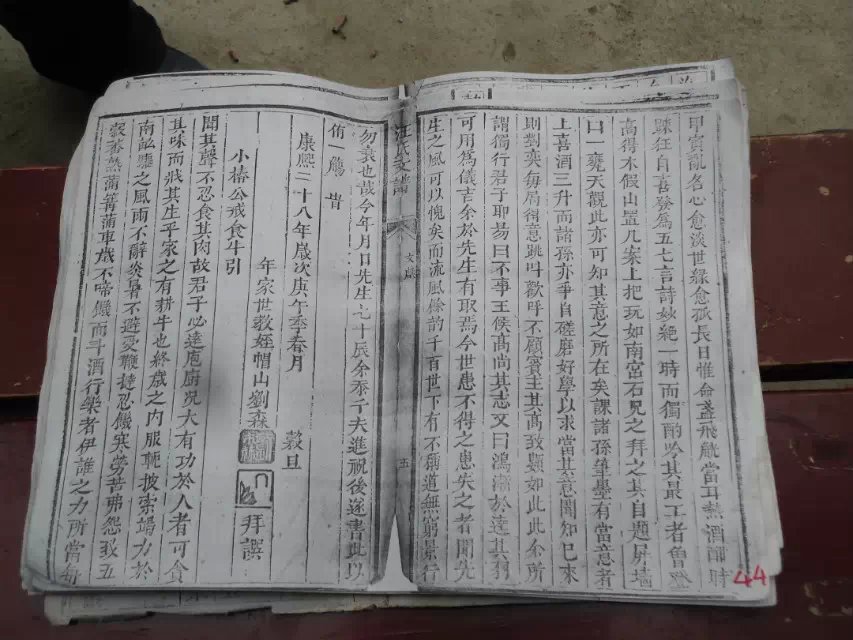 甲寅亂名心愈淡世緣愈孤長日惟命盞飛觥當耳熱酒酣時
踈狂自喜發爲五七言詩妙絕一時而獨酌吟其最工者魯
高得木假山置几案上把玩如南宮石兄之拜之其自題屏墻
曰一甕天觀此亦可知其意之所在矣課諸孫筆墨有當意者
上喜酒三升而諸孫亦爭自磋磨好學以求當其意閒知已來
則對奕每局得意跳呌歡呼不顧賓主其高致類如此此余所
謂獨行君子耶易曰不事王侯高尚其志又曰鴻漸於逵其羽
可用爲儀吉余於先生有取焉今世患不得之患失之者聞先
生之風可以愧矣而流風餘韵千百世下有不稱道無窮景行
汪氏支譜
文
五
勿衰也哉今年月日先生七十辰余忝千夫進祝後遂書此以
侑一觴昔
康熙二十八年歲次庚午季春月 穀旦
年家世教姪帽山劉森 拜譔
小椿公戒食牛引
聞其聲不忍食其肉故君子必遠庖廚况大有功於人者可貪
其味而戕其生乎家之有耕牛也終歲之內服軛披索竭力於
南畝驟之風雨不辭炎暑不避受鞭撻忍饑寒勞苦弗怨致五
穀黍熟蒲篝蒲車歲不啼饑而斗酒行樂者伊誰之力所當每
44